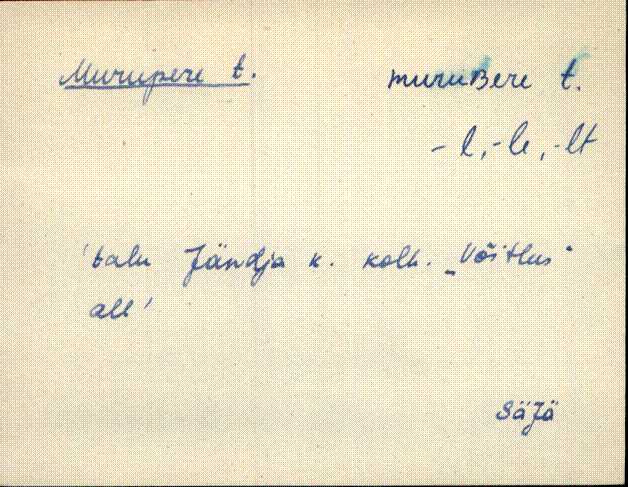 Murupere t. muruBere t.
-l, -le, -lt
'talu Jändja k. kolh. „Võitlus"
all'
Säjä